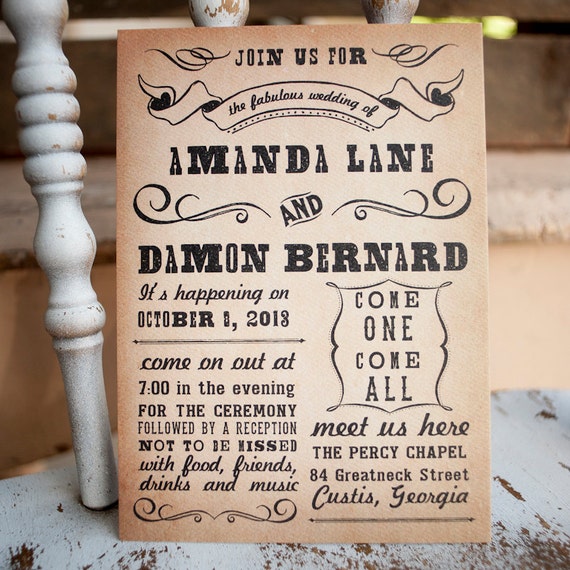 JOIN US FOR
the fabulous wedding of
AMANDA LANE
AND
DAMON BERNARD
It's happening on
OCTOBER 8, 2013
come on out at
7:00 in the evening
FOR THE CEREMONY
FOLLOWED BY A RECEPTION
NOT TO BE MISSED
with food, friends,
drinks and music
COME
ONE
COME
ALL
meet us here
THE PERCY CHAPEL
84 Greatneck Street
Custis, Georgia